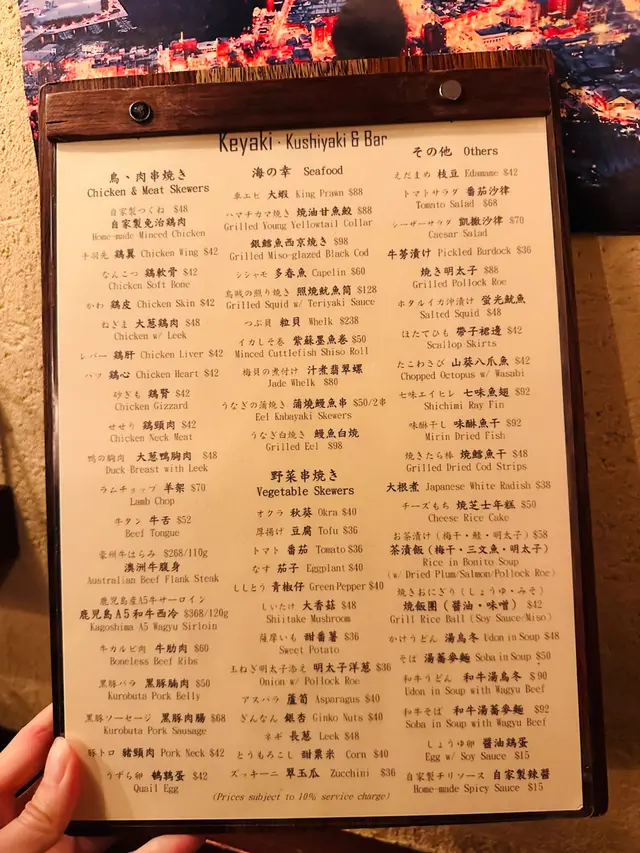 Keyaki · Kushiyaki & Bar
鳥、肉串焼き
Chicken & Meat Skewers
自家製つくね $48
自家製免治鶏肉
Home-made Minced Chicken
手羽先 鶏翼 Chicken Wing $42
なんこつ 鶏軟骨 $42
Chicken Soft Bone
かわ 鶏皮 Chicken Skin $42
ねぎま 大葱鶏肉 $48
Chicken w/ Leek
レバー 鶏肝 Chicken Liver $42
ハツ 鶏心 Chicken Heart $42
砂ぎも 鶏腎 $42
Chicken Gizzard
せせり 鶏頸肉 $42
Chicken Neck Meat
鴨の胸肉 大葱鴨胸肉 $48
Duck Breast with Leek
ラムチョップ 羊架 $70
Lamb Chop
牛タン 牛舌 $52
Beef Tongue
豪州牛はらみ $268/110g
澳洲牛腹身
Australian Beef Flank Steak
鹿児島産A5和牛サーロイン
鹿児島A5和牛西冷 $368/120g
Kagoshima A5 Wagyu Sirloin
牛カルビ肉 牛肋肉 $60
Boneless Beef Ribs
黒豚バラ 黑豚腩肉 $50
Kurobuta Pork Belly
黒豚ソーセージ 黑豚肉腸 $68
Kurobuta Pork Sausage
豚トロ 豬頸肉 Pork Neck $42
うずら卵 鵪鶉蛋 $42
Quail Egg
海の幸 Seafood
車エビ 大蝦 King Prawn $88
ハマチカマ焼き 燒油甘魚鮫 $88
Grilled Young Yellowtail Collar
銀鱈魚西京焼き $98
Grilled Miso-glazed Black Cod
シシャモ 多春魚 Capelin $60
烏賊の照り焼き 照燒魷魚筒 $128
Grilled Squid w/ Teriyaki Sauce
つぶ貝 粒貝 Whelk $238
イカしそ巻 紫蘇墨魚卷 $50
Minced Cuttlefish Shiso Roll
梅貝の煮付け 汁煮翡翠螺
Jade Whelk $80
うなぎの蒲焼き 蒲燒鰻魚串 $50/2串
Eel Kabayaki Skewers
うなぎ白焼き 鰻魚白燒
Grilled Eel $98
野菜串焼き
Vegetable Skewers
オクラ 秋葵 Okra $40
厚揚げ 豆腐 Tofu $36
トマト 番茄 Tomato $36
なす 茄子 Eggplant $40
ししとう 青椒仔 Green Pepper $40
しいたけ 大香菇 $48
Shiitake Mushroom
薩摩いも 甜番薯 $36
Sweet Potato
玉ねぎ明太子添え 明太子洋葱 $36
Onion w/ Pollock Roe
アスパラ 蘆筍 Asparagus $40
ぎんなん 銀杏 Ginko Nuts $40
ネギ 長葱 Leek $48
とうもろこし 甜粟米 Corn $40
ズッキーニ 翠玉瓜 Zucchini $36
その他 Others
えだまめ 枝豆 Edamame $42
トマトサラダ 番茄沙律
Tomato Salad $68
シーザーサラダ 凱撒沙律 $70
Caesar Salad
牛蒡漬け Pickled Burdock $36
焼き明太子 $88
Grilled Pollock Roe
ホタルイカ沖漬け 螢光魷魚
Salted Squid $48
ほたてひも 帶子裙邊 $42
Scallop Skirts
たこわさび 山葵八爪魚 $42
Chopped Octopus w/ Wasabi
七味エイヒレ 七味魚翅 $92
Shichimi Ray Fin
味醂干し 味醂魚干 $92
Mirin Dried Fish
焼きたら棒 燒鱈魚干 $48
Grilled Dried Cod Strips
大根煮 Japanese White Radish $38
チーズもち 燒芝士年糕 $50
Cheese Rice Cake
お茶漬け（梅干・鮭・明太子）$58
茶漬飯（梅干・三文魚・明太子）
Rice in Bonito Soup
(w/ Dried Plum/Salmon/Pollock Roe)
焼きおにぎり（しょうゆ・みそ）
燒飯團（醬油・味噌） $42
Grill Rice Ball (Soy Sauce/Miso)
かけうどん 湯烏冬 Udon in Soup $48
そば 湯蕎麥麵 Soba in Soup $50
和牛うどん 和牛湯烏冬 $90
Udon in Soup with Wagyu Beef
和牛そば 和牛湯蕎麥麵 $92
Soba in Soup with Wagyu Beef
しょうゆ卵 醬油鶏蛋
Egg w/ Soy Sauce $15
自家製チリソース 自家製辣醬
Home-made Spicy Sauce $15
(Prices subject to 10% service charge)